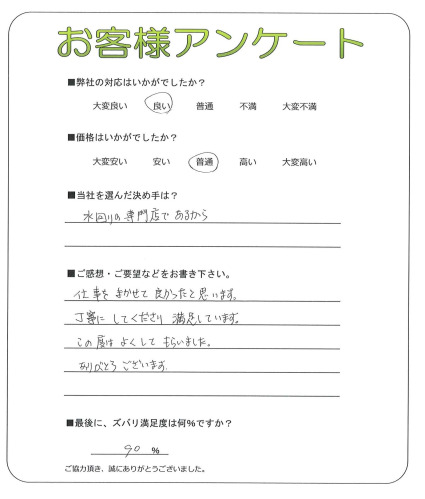 お客様アンケート
■弊社の対応はいかがでしたか？
大変良い 良い 普通 不満 大変不満
■価格はいかがでしたか？
大変安い 安い 普通 高い 大変高い
■当社を選んだ決め手は？
水回りの専門店であるから
■ご感想・ご要望などをお書き下さい。
仕事をまかせて良かったと思います。
丁寧にしてくださり満足しています。
この度はよくしてもらいました。
ありがとうございます.
■最後に、ズバリ満足度は何％ですか？
90 %
ご協力頂き、誠にありがとうございました。